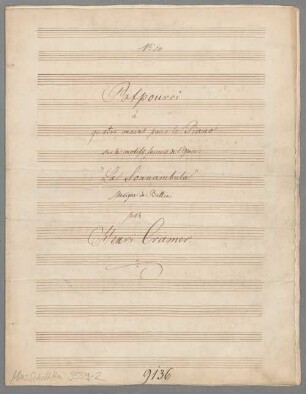 No 10
Potpourri
à
quatre mains pour le Piano
sur les motifs favoris de l'Opera
"La Sonnambula"
Musique de Bellini
par
Henri Cramer.
9136